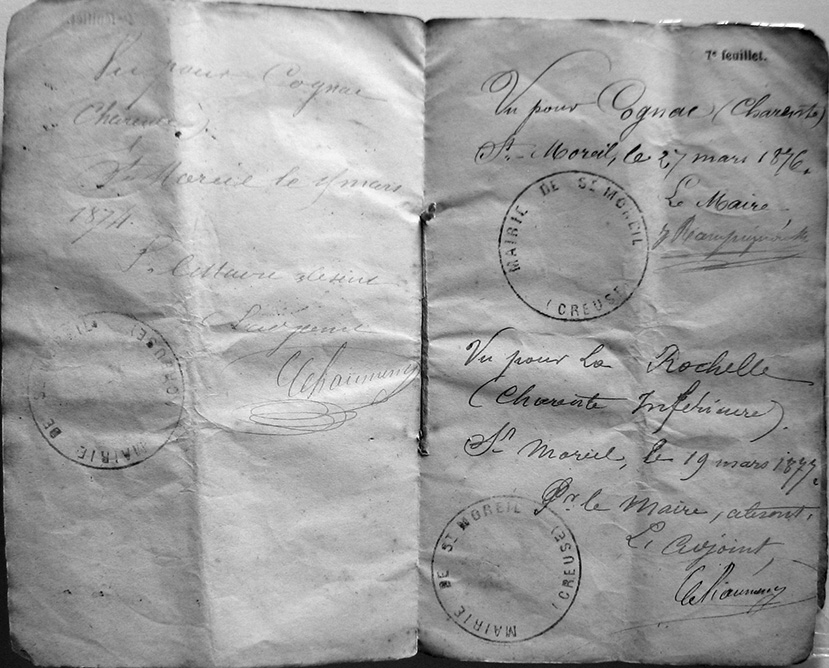 Vu pour Cognac
(Charente).
St Moreil le mars
1874.
P. le Maire absent
Chaumeny
MAIRIE DE ST MOREIL (CREUSE)
7e feuillet.
Vu pour Cognac (Charente)
St-Moreil, le 27 mars 1876.
Le Maire
MAIRIE DE ST MOREIL
(CREUSE)
Vu pour La Rochelle
(Charente Inférieure).
St Moreil, le 19 mars 1877.
Pr. le Maire, absent,
L'adjoint,
Chaumeny
MAIRIE DE ST MOREIL (CREUSE)